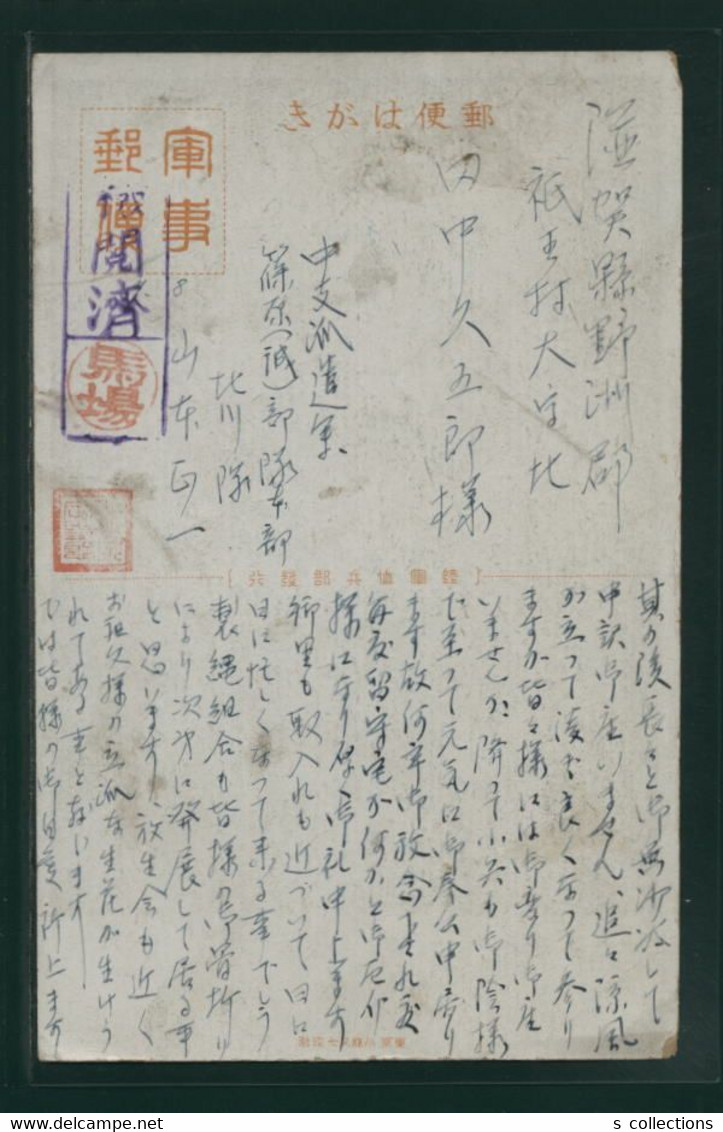 郵便はがき
軍事
郵便
検閲済
馬場
滋賀縣野洲郡
祇王村大字北
田中久五郎様
中支派遣軍
篠原(誠)部隊本部
北川隊
山本正一
陸軍恤兵部發行
其の後長々と御無沙汰して
申訳御座いません、追々涼風
が立つて凌ぎ良くなつて参り
ますが皆々様には御変り御座
いませんか、降つて小生も御陰様
で至つて元気に御奉公申居り
ます故何卒御放念下され度
毎度留守宅が何かと御厄介
様になり厚く御礼申上ます
郷里も取入れも近づいて日に
日に忙しくなつて来る事でせう
製縄組合も皆様の御骨折り
により次第に発展して居る事
と思ひます、放生会も近く
お祖父様の立派な生花が生けら
れてある事と存じます
では皆様の御自愛祈上ます
delcampe.net
s_collections